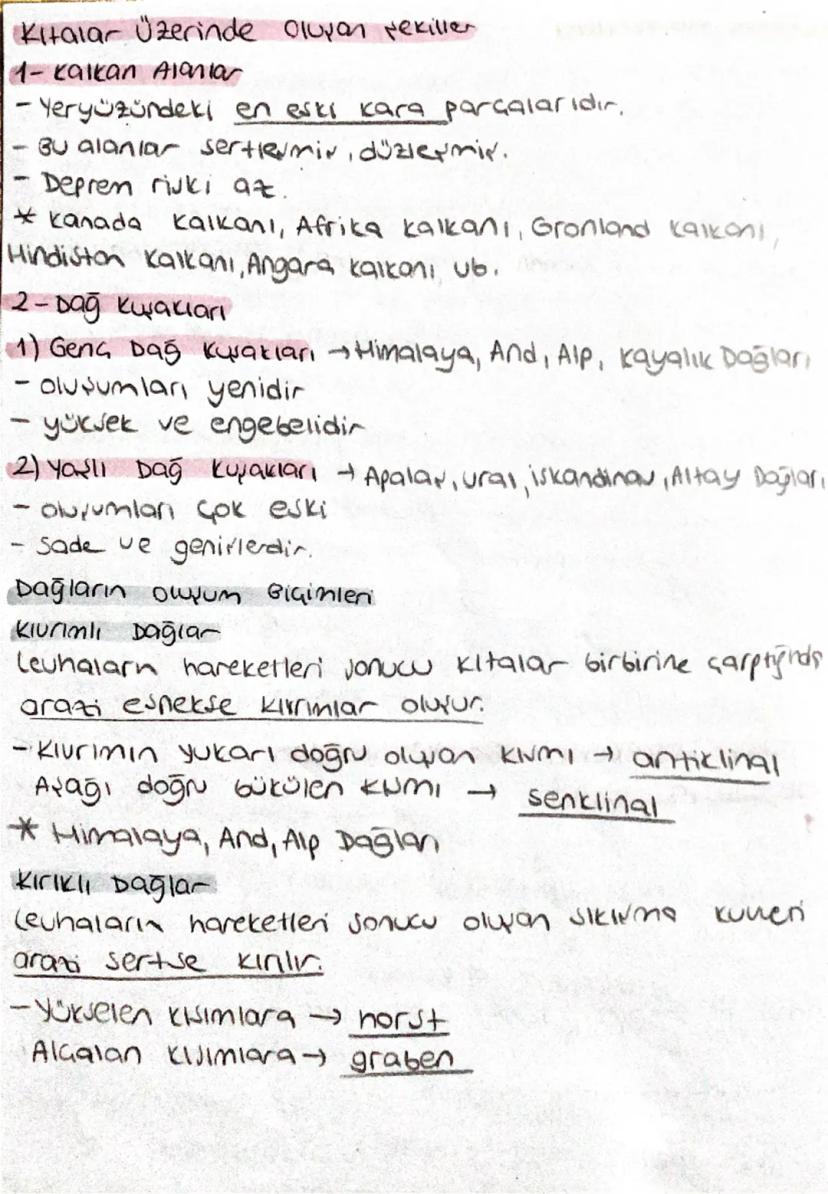 Kıtalar Üzerinde Oluşan Şekiller
1- Kalkan Alanlar
- Yeryüzündeki en eski kara parçalarıdır.
- Bu alanlar sertleşmiş, düzleşmiş.
- Deprem riski az.
* Kanada kalkanı, Afrika kalkanı, Gronland kalkanı,
Hindistan kalkanı, Angara kalkanı vb.
2- Dağ Kuşakları
1) Genç Dağ Kuşakları → Himalaya, And, Alp, Kayalık Dağları
- oluşumları yenidir
- yüksek ve engebelidir
2) Yaşlı Dağ Kuşakları → Apalaş, Ural, İskandinav, Altay Dağları
- oluşumları çok eski
- Sade ve genişlerdir.
Dağların oluşum Biçimleri
Kıvrımlı Dağlar
Levhaların hareketleri sonucu kıtalar birbirine çarptığında
arazi esnekse kıvrımlar oluşur.
- Kıvrımın yukarı doğru oluşan kısmı → antiklinal
Aşağı doğru bükülen kısmı → senklinal
* Himalaya, And, Alp Dağları
Kırıklı Dağlar
Levhaların hareketleri sonucu oluşan sıkışma kuvveti
arazi sertse kırılır.
- Yükselen kısımlara → horst
Alçalan kısımlara → graben